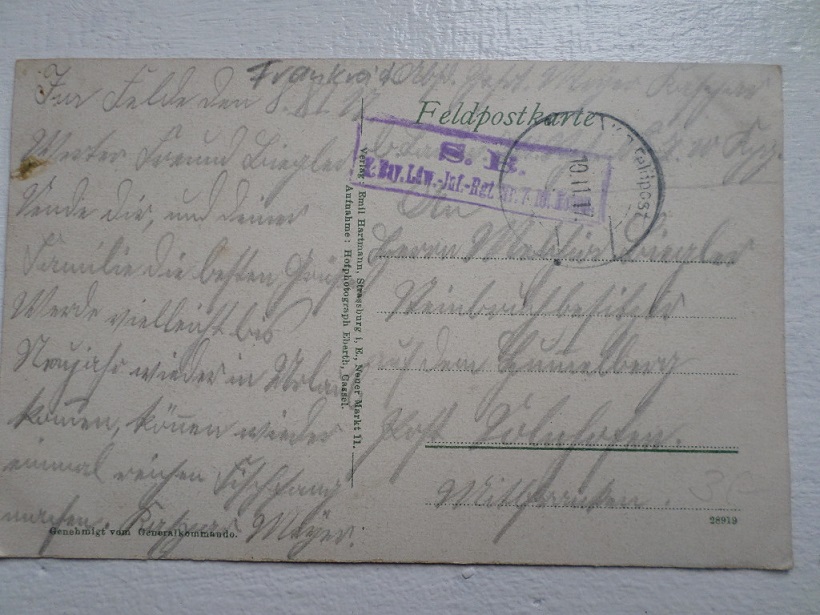 Frankreich
Im Felde den 8. XI. 17
Werter Freund Ziegler
Sende dir, und deiner
Familie die besten Grüße
Werde vielleicht bis
Neujahr wieder in Urlaub
kommen, können wieder
einmal reichen Fischfang
machen. Kaspar Mayer.
Genehmigt vom Generalkommando.
Verlag Emil Hartmann, Strassburg i. E., Neuer Markt 11.
Aufnahme: Hofphotograph Eberth, Cassel.
Abs. Gefr. Mayer Kaspar
Feldpostkarte
S. B.
Bay. Ldw.-Inf.-Rgt. Nr. 7
10.11.17
Feldpost
An
Herrn Ziegler
Steinbruchbesitzer
auf dem Hummelberg
Post Solnhofen.
Mittelfranken.
28919